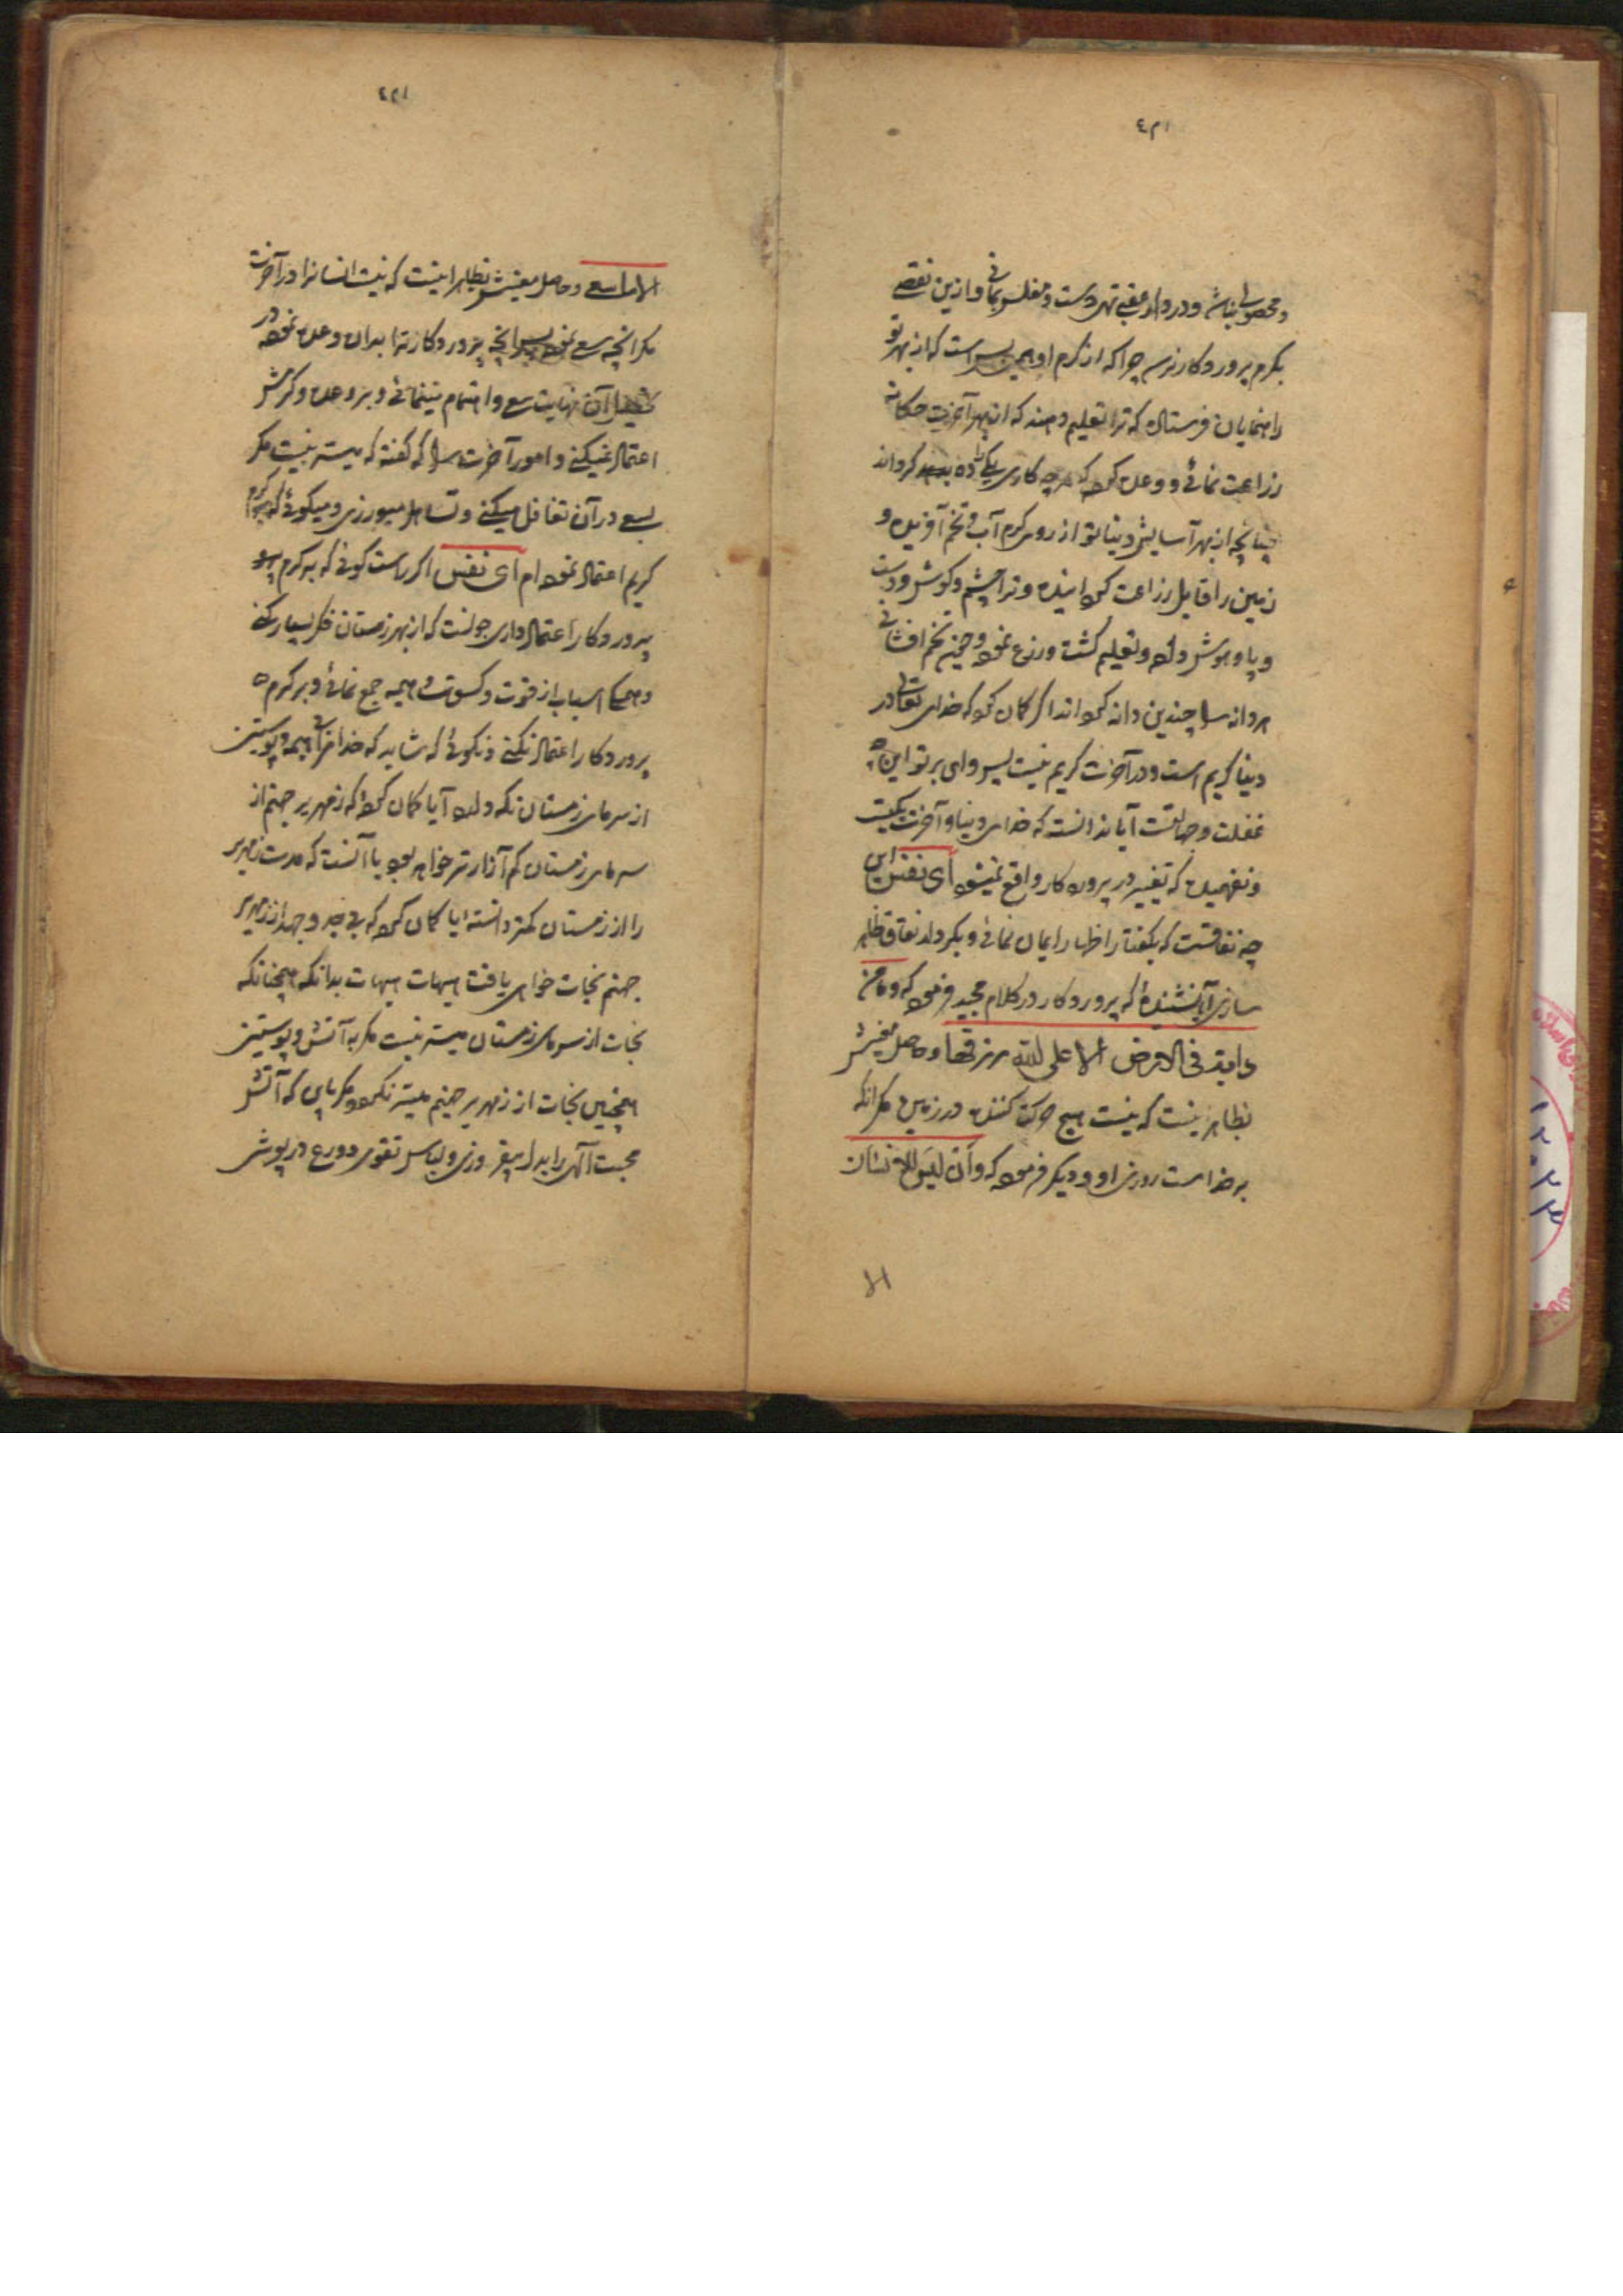 و محصولی نباشد و در دار عقبی تهی دست و مفلس بمانی و ازین نقصی
بکرم پروردکار نرسد چرا که از کرم او همین بس است که از بهر تو
راهنمایان فرستاده که ترا تعلیم دهند که از بهر آخرت چکانه
زراعت نمائی و وعده کرده که هرچه کاری یکی را ده کرداند
چنانچه از بهر آسایش دنیا تو از روی کرم آب و تخم آفریده و
زمین را قابل زراعت کردانیده و ترا چشم و کوش و دست
و پا و هوش داده و تعلیم کشت و زرع نموده و چنین تخم افشانی
هر دانه را چندین دانه کرداند اکر کمان کرده که خدای تعالی در
دنیا کریم است و در آخرت کریم نیست پس وای بر تو این چه
غفلت و جهالتست آیا ندانسته که خدای دنیا و آخرت یکیست
و نفهمیده که تغییر در پروردکار واقع نمیشود ای نفس این
چه نفاقست که بکفتار اظهار ایمان نمائی و بکردار نفاق ظاهر
سازی آیا نشنیدهٔ که پروردکار در کلام مجید فرموده که و ما من
دابة فی الارض الا علی الله رزقها و حاصل معنیش
بظاهر اینست که نیست هیچ حرکت کننده در زمین مکر آنکه
بر خداست روزی او و دیکر فرموده که و ان لیس للانسان
الا ما سعی و حاصل معنیش بظاهر اینست که نیست انسانرا در آخرت
مکر آنچه سعی نموده پس آنچه پروردکار ترا بدان وعده نموده در
تحصیل آن نهایت سعی و اهتمام مینمائی و بر وعده و کرمش
اعتماد نمیکنی و امور آخرت را که کفته که میسر نیست مکر
بسعی در آن تغافل میکنی و تساهل میورزی و میکوئی که بر کرم
کریم اعتماد نموده ام ای نفس اکر راست کوئی که بر کرم
پروردکار اعتماد داری چونست که از بهر زمستان فکر بسیار کنی
و همه اسباب از قوت و کسوت و هیمه جمع نمائی و بر کرم
پروردکار اعتماد نکنی و نکوئی که شاید که خدا مرا بی هیمه و پوستین
از سرمای زمستان نکه دارد آیا کمان کردهٔ که زمهریر جهنم از
سرمای زمستان کم آزارتر خواهد بود یا آنست که مدت زمهریر
را از زمستان کمتر دانسته آیا کمان کرده که بی جد و جهد از زمهریر
جهنم نجات خواهی یافت هیهات هیهات بدانکه همچنانکه
نجات از سرمای زمستان میسر نیست مکر به آتش و پوستین
همچنین نجات از زمهریر جهنم میسر نکردد مکر بآن که آتش
محبت آلهی را بدل بیفروزی و لباس تقوی و ورع در پوشی